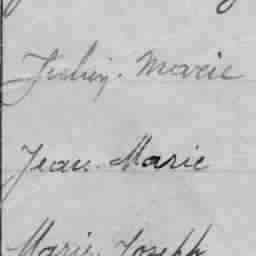 Julien Marie
Jean Marie
Marie Joseph